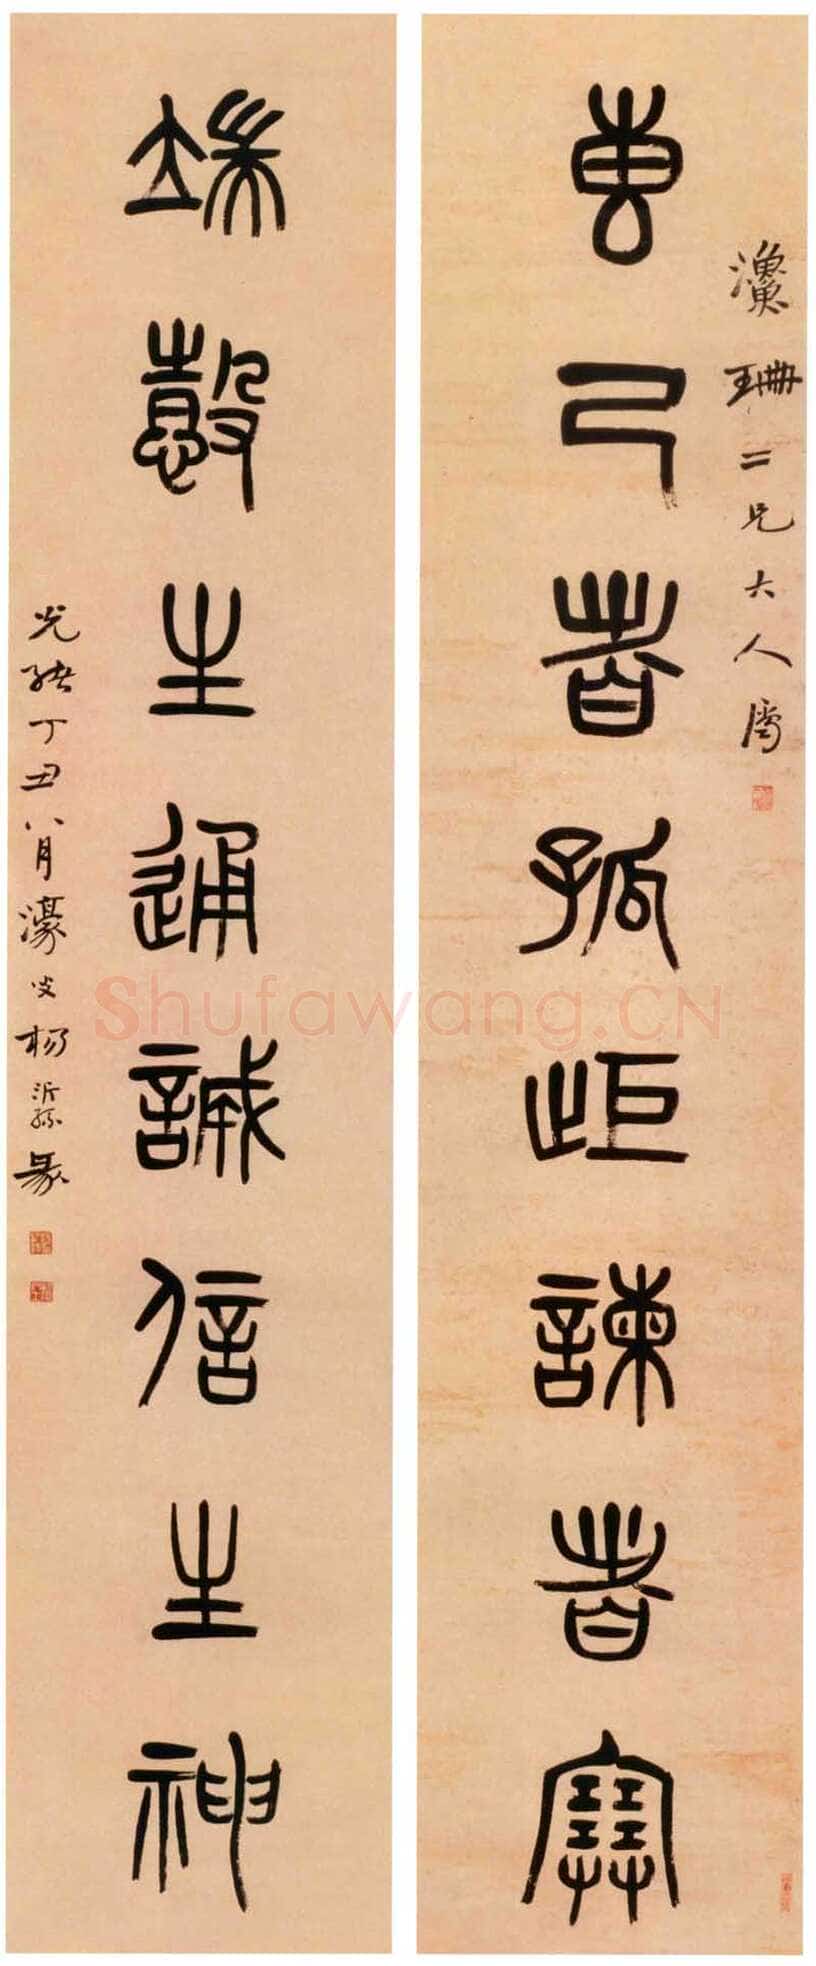 漁珊二兄大人屬
專己者孤歫諫者塞
端愨生通誠信生神
光緒丁丑八月濠叟楊沂孫篆
Shufawang.CN